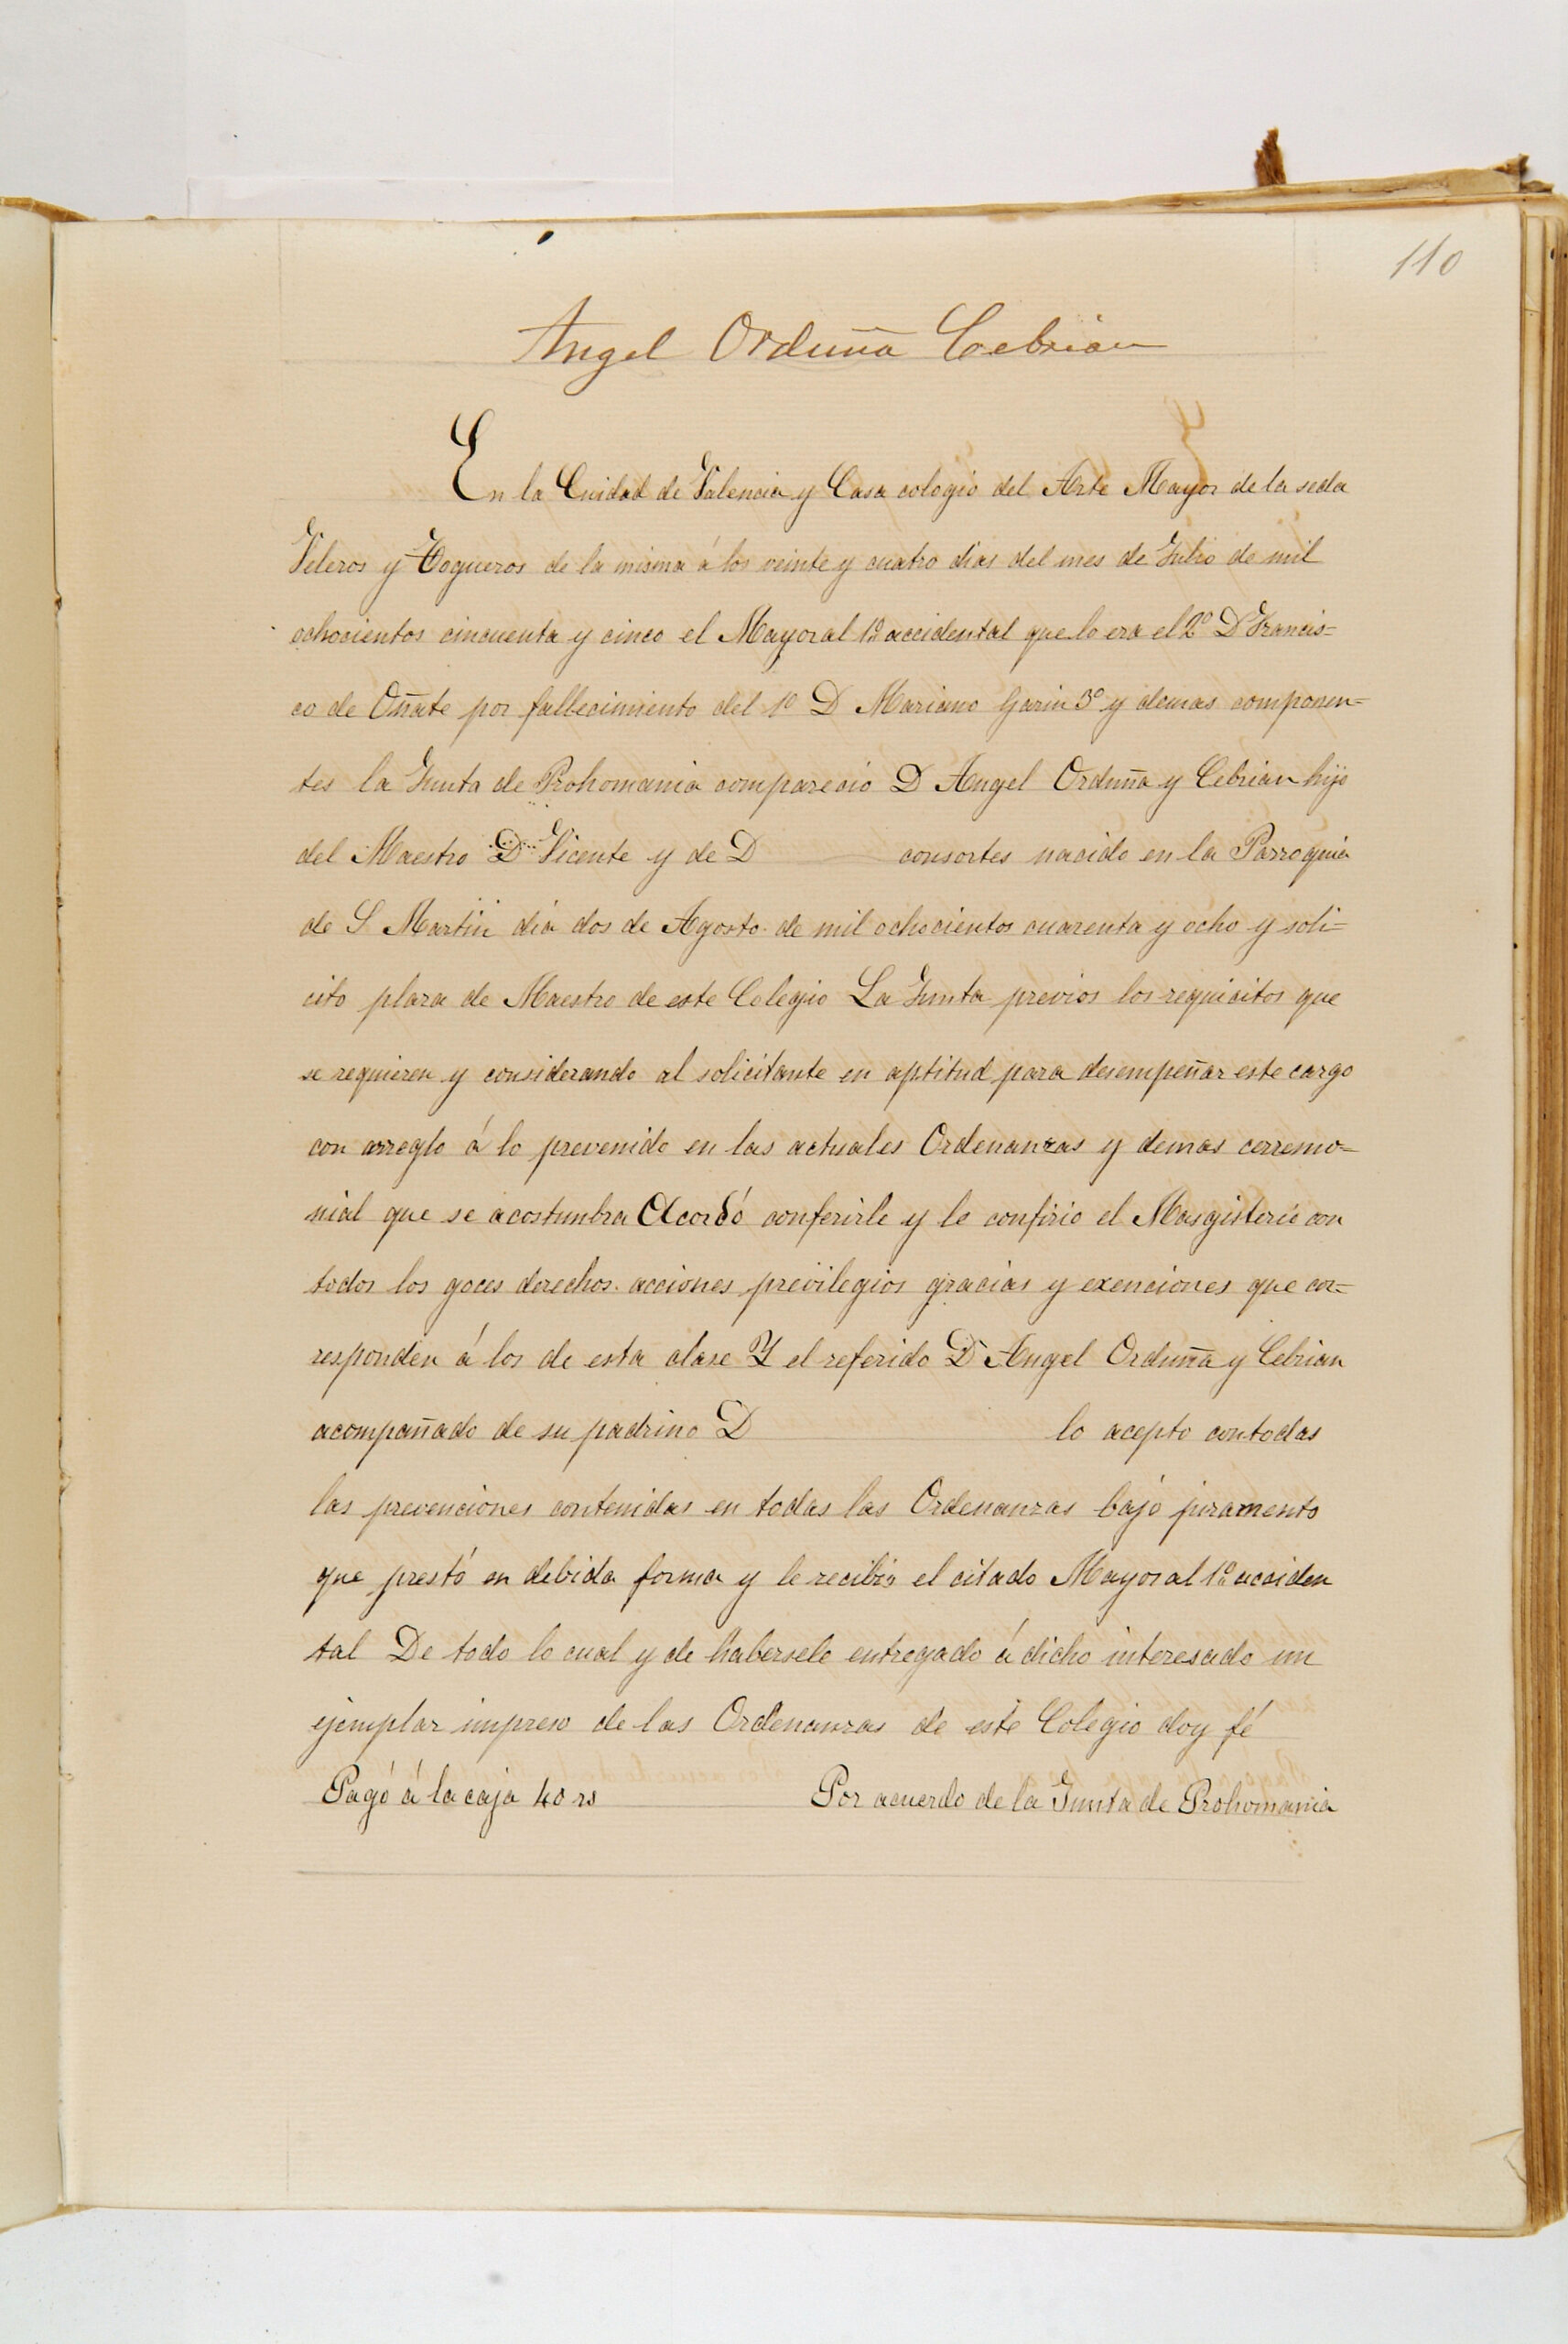 110
Angel Orduña Cebrian
En la Cuidad de Valencia y Casa cologio del Arte Mayor de la seda
Veleros y Toqueros de la misma á los veinte y cuatro dias del mes de Julio de mil
ochocientos cincuenta y cinco el Mayoral 1º accidental que lo era el 2º D Francis=
co de Oñate por fallecimiento del 1º D Mariano Garin 3º y demas componen=
tes la Junta de Prohomania comparecio D Angel Orduña y Cebrian hijo
del Maestro D Vicente y de D consortes nacido en la Parroquia
de S Martin dia dos de Agosto de mil ochocientos cuarenta y ocho y soli=
cito plaza de Maestro de este Colegio La Junta previos los requicitos que
se requieren y considerando al solicitante en aptitud para desempeñar este cargo
con arreglo á lo prevenido en las actuales Ordenanzas y demas cerremo=
nial que se acostumbra Acordó conferirle y le confirio el Masgisterio con
todos los goces derechos acciones previlegios gracias y exenciones que cor=
responden á los de esta clase Y el referido D Angel Orduña y Cebrian
acompañado de su padrino D lo acepto con todas
las prevenciones contenidas en todas las Ordenanzas bajo juramento
que prestó en debida forma y le recibio el citado Mayoral 1º acciden
tal De todo lo cual y de habersele entregado á dicho interesado un
ejemplar impreso de las Ordenanzas de este Colegio doy fé
Pagó á la caja 40 rs Por acuerdo de la Junta de Prohomania